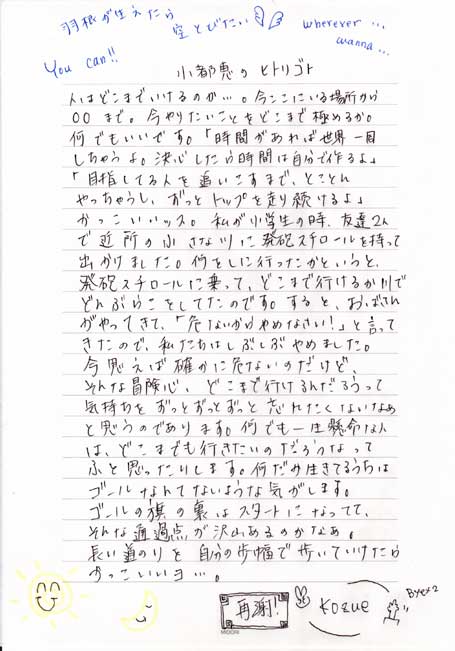 羽根が生えたら
空とびたい
wherever...
wanna...
You can!!
小都恵のヒトリゴト
人はどこまでいけるのか…。今ここにいる場所から
○○まで。今やりたいことをどこまで極めるか。
何でもいいです。「時間があれば世界一周
しちゃうよ。決心したら時間は自分で作るよ」
「目指してる人を追いこすまで、とことん
やっちゃうし、ずっとトップを走り続けるよ」
かっこいいッス。私が小学生の時、友達2人
で近所の小さな川に発砲スチロールを持って
出かけました。何をしに行ったかというと、
発砲スチロールに乗って、どこまで行けるか川で
どんぶらこをしてたのです。すると、おばさん
がやってきて、「危ないからやめなさい!」と言って
きたので、私たちはしぶしぶやめました。
今思えば確かに危ないのだけど、
そんな冒険心、どこまで行けるんだろうって
気持ちをずっとずっとずっと忘れたくないなあ
と思うのであります。何でも一生懸命な人
は、どこまでも行きたいのだろうなって
ふと思ったりします。何だか生きてるうちは
ゴールなんてないような気がします。
ゴールの旗の裏はスタートになってて、
そんな通過点が沢山あるのかなぁ。
長い道のりを自分の歩幅で歩いていけたら
かっこいいヨ…。
再謝!
Kozue
Bye×2
MIDORI